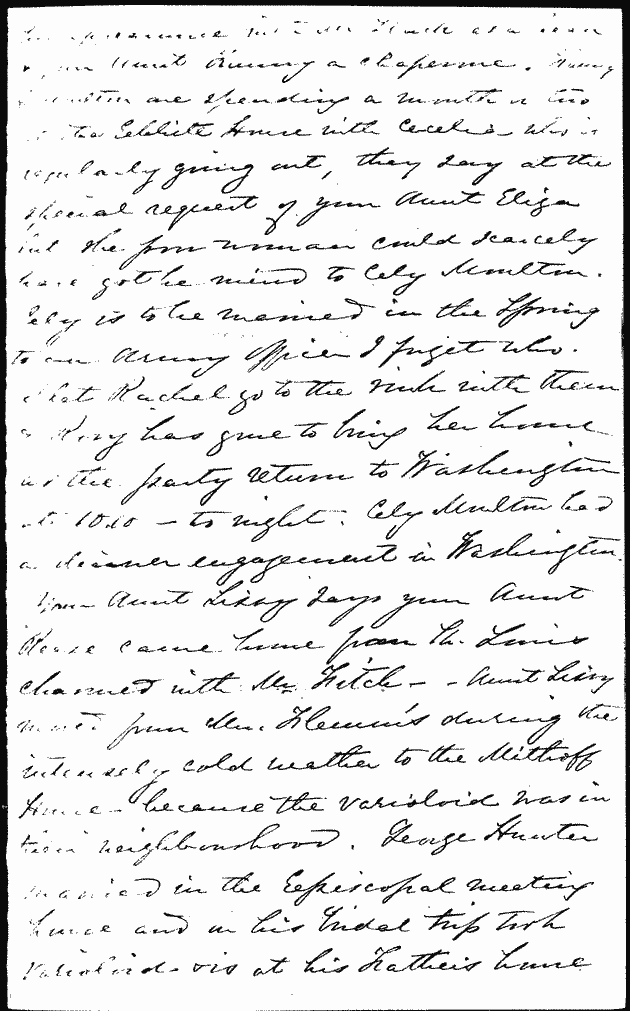 as a
your Aunt Fanny a chaperone.
are spending a month or two
at the Ebbitt House with Cecelia who is
regularly going out, they say at the
special request of your Aunt Eliza
but she poor woman could scarcely
have got he mind to Cely Moulton.
Cely is to be married in the Spring
to an Army Officer I forget who.
that Rachel go to the rink with them
& Rory has gone to bring her home
as the party return to Washington
at 10.10 - to night. Cely Moulton had
a dinner engagement in Washington.
Your Aunt Lissy says your Aunt
Reese came home from St. Louis
charmed with Mr Fitch - - Aunt Lissy
moved from Mrs. Flemm's during the
intensely cold weather to the Mithoff
House - because the varioloid was in
their neighbourhood. George Hunter
married in the Episcopal meeting
house and on his bridal trip took
varioloid - vis at his Father's house